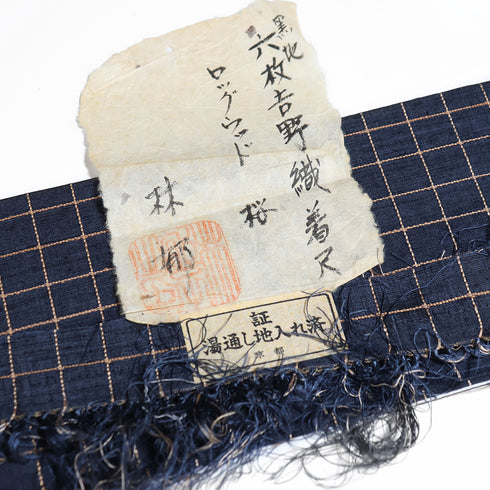 黒地
六枚吉野織着尺
ロッグウッド
桜
林 郁
証
湯通し地入れ済
京都